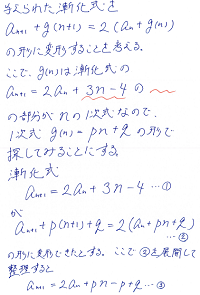 与えられた漸化式を
aₙ₊₁ + g(n+1) = 2(aₙ + g(n))
の形に変形することを考える.
ここで, g(n)は漸化式の
aₙ₊₁ = 2aₙ + 3n - 4 の 〜〜
の部分が n の1次式なので,
1次式 g(n) = pn + q の形で
探してみることにする.
漸化式
aₙ₊₁ = 2aₙ + 3n - 4 …①
が
aₙ₊₁ + p(n+1) + q = 2(aₙ + pn + q)
…②
の形に変形できたとする. ここで ②を展開して
整理すると
aₙ₊₁ = 2aₙ + pn - p + q …③